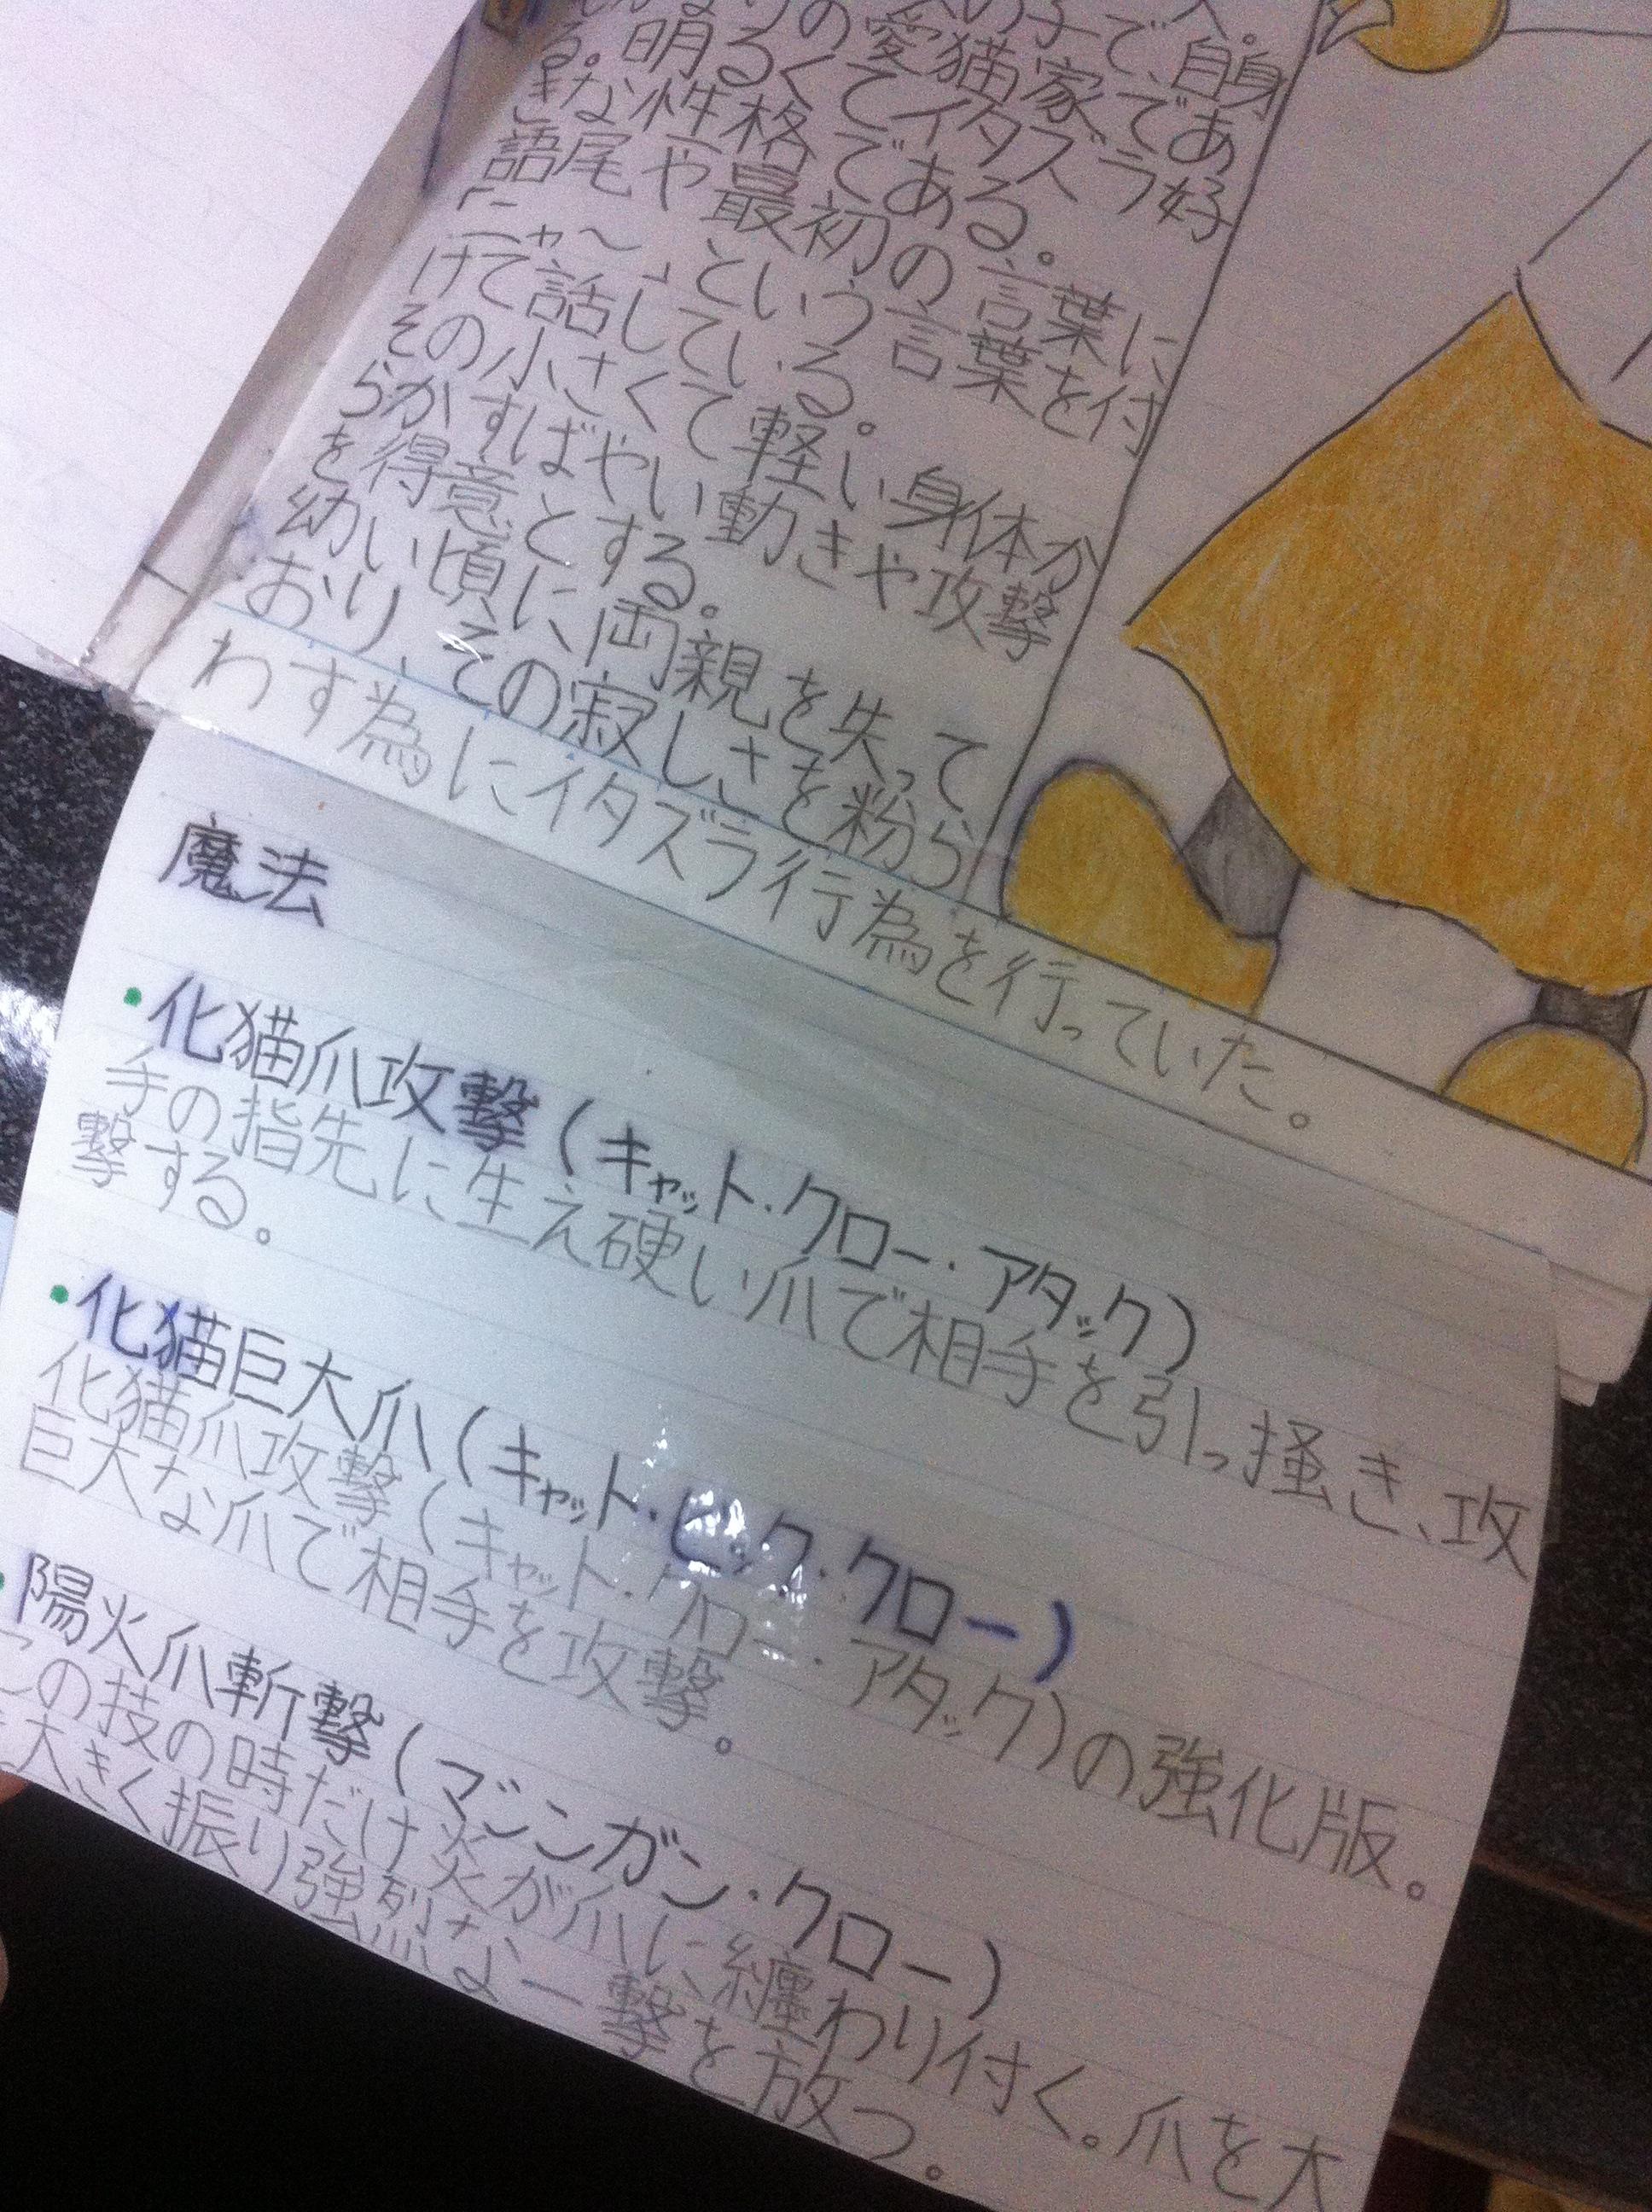 の子で、自身
の愛猫家であ
る。明るくてイタズラ好
きな性格である。
語尾や最初の言葉に
「ニャ〜」という言葉を付
けて話している。
その小さくて軽い身体か
らかすばやい動きや攻撃
を得意とする。
幼い頃に両親を失って
おり、その寂しさを粉ら
わす為にイタズラ行為を行っていた。
魔法
・化猫爪攻撃(キャット・クロー・アタック)
手の指先に生え硬い爪で相手を引っ掻き、攻
撃する。
・化猫巨大爪(キャット・ビック・クロー)
化猫爪攻撃(キャット・クロー・アタック)の強化版。
巨大な爪で相手を攻撃。
・陽火爪斬撃(マシンガン・クロー)
この技の時だけ炎が爪に纏わり付く。爪を大
大きく振り強烈な一撃を放つ。